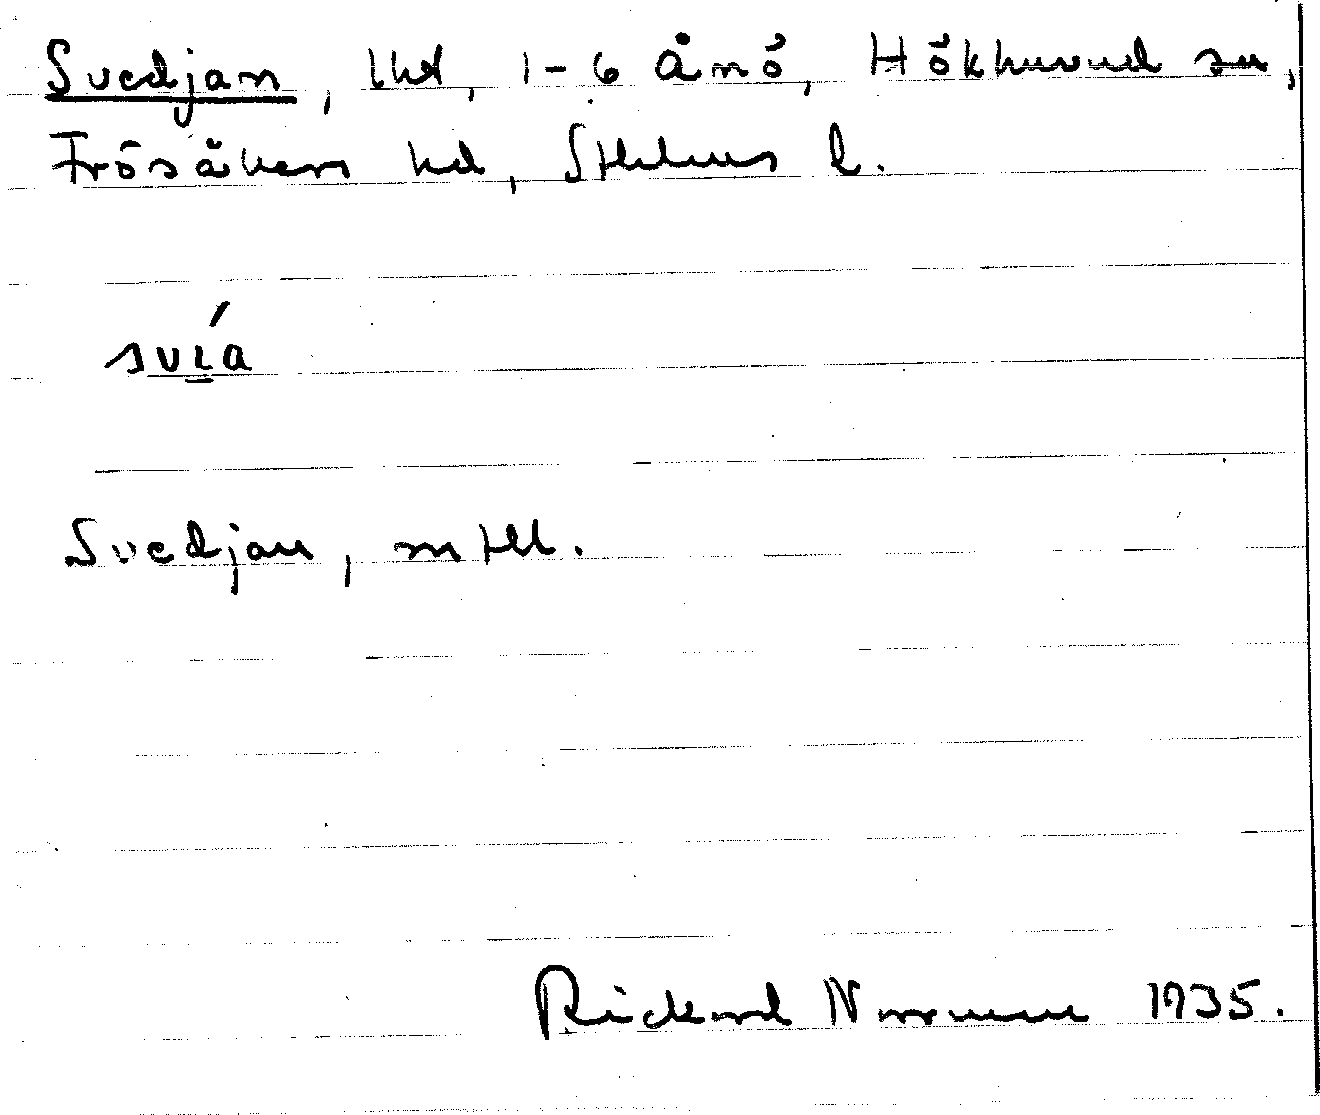 Svedjan, lht, 1-6 Ånö, Hökhuvud sn,
Frösåkers hd, Sthlms l.
svía
Svedjan, mtll.
Rickard Norrman 1935.